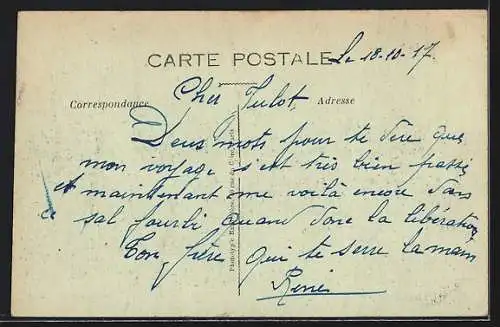 CARTE POSTALE
Le 18-10-17
Correspondance
Adresse
Cher Julot
Deux mots pour te dire que
mon voyage s'est très bien passé
et maintenant me voilà encore dans
ce sal fourbi quand donc la libération
Ton frère qui te serre la main
René